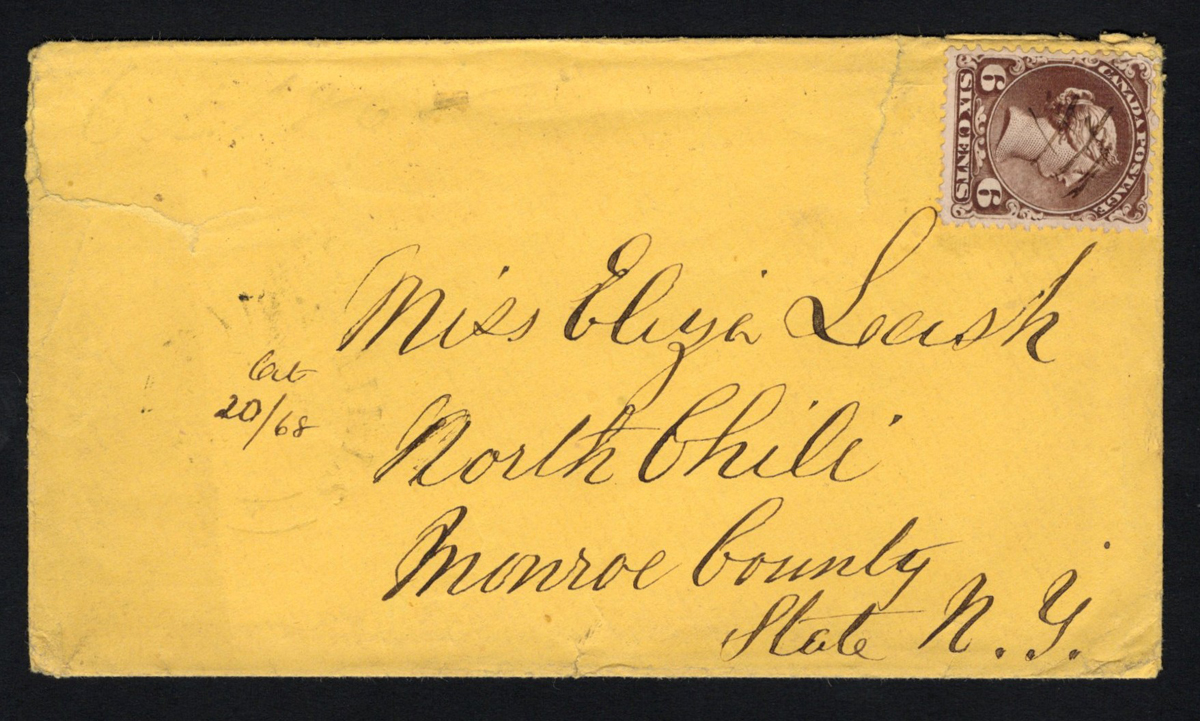 CANADA POSTAGE
SIX CENTS
6 6
Miss Eliza Leash
Oct
20/68
North Chili
Monroe County
State N.Y.